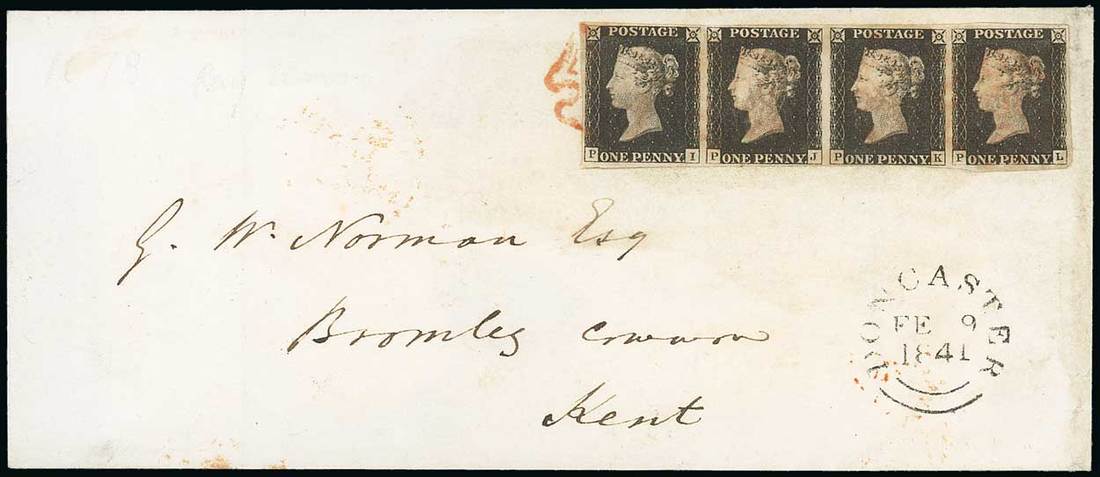 POSTAGE POSTAGE POSTAGE POSTAGE
P ONE PENNY I P ONE PENNY J P ONE PENNY K P ONE PENNY L
G. W. Norman Esq
Bromley Common
Kent
DONCASTER
FE 9
1841